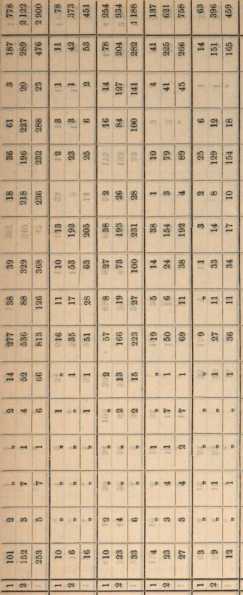 1 101 2 » » 2 14 277 38 39 18 36 61 3 187 778
2 152 3 7 1 4 52 536 88 329 218 196 227 20 289 2 122
253 5 7 1 6 66 813 126 368 236 232 288 23 476 2 900
1 10 » » » 1 » 16 11 10 13 2 3 1 11 78
2 6 » » » » 1 35 17 53 192 23 3 1 42 373
16 » » » 1 1 51 28 63 205 25 6 2 53 451
1 10 2 » » » 2 57 8 27 38 2 16 14 78 254
2 23 4 » » 2 13 166 19 73 193 26 84 127 204 934
33 6 » » 2 15 223 27 100 231 28 100 141 282 1 188
1 4 » » 1 » » 19 5 14 38 1 10 4 41 137
2 23 3 4 1 7 1 50 6 24 154 3 79 41 225 621
27 3 4 2 7 1 69 11 38 192 4 89 45 266 758
1 3 » » » » » 9 » 1 3 2 25 6 14 63
2 9 » 1 » » 1 27 11 33 14 8 129 12 151 396
12 » 1 » » 1 36 11 34 17 10 154 18 165 459